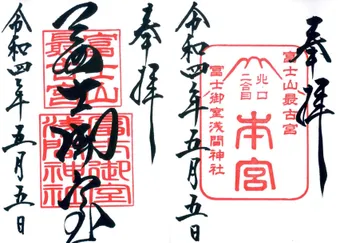 奉拝
富士山
最古宮
富士御室
冨士御室
浅間神社
令和四年五月五日
奉拝
富士山最古宮
北口
二合目
本宮
富士御室浅間神社
令和四年五月五日